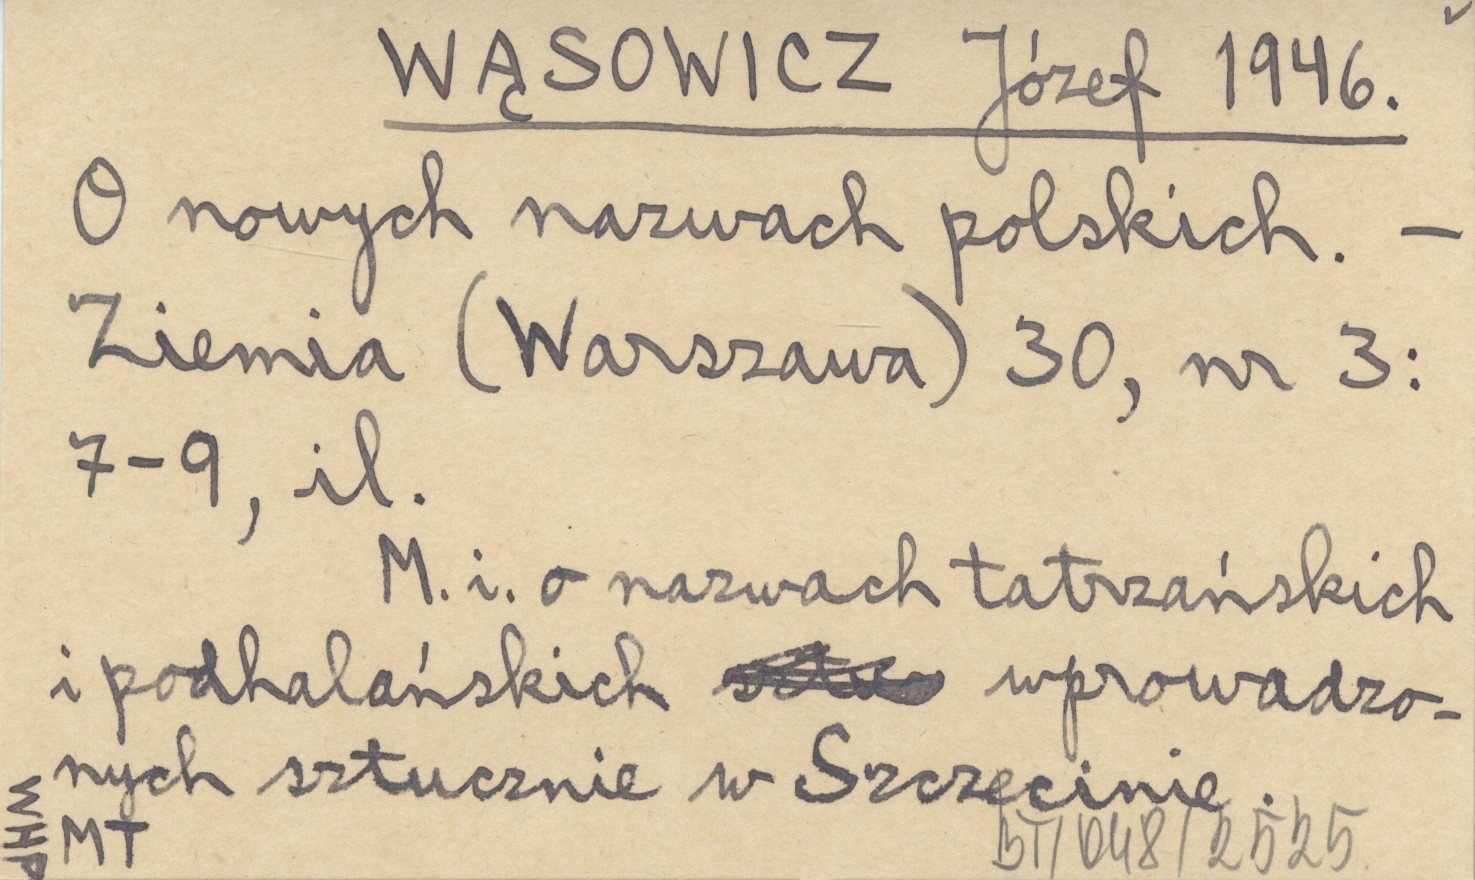 WĄSOWICZ Józef 1946.
O nowych nazwach polskich. –
Ziemia (Warszawa) 30, nr 3:
7-9, il.
M. i. o nazwach tatrzańskich
i podhalańskich wprowadzo-
nych sztucznie w Szczecinie.
WHP
MT
BT/048/2525